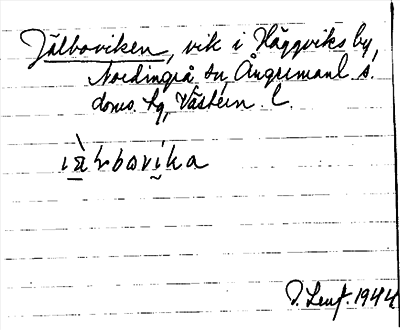 Jälboviken, vik i Häggviks by,
Nordingrå sn, Ångermanl. s.
doms. tg, Västern. l.
P. Lenf. 1944